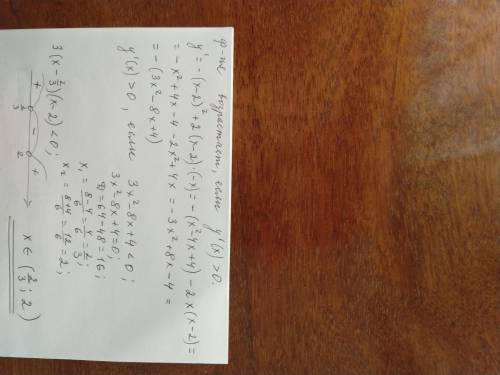 ф-ие возрастает, если y'(x) > 0.
y' = -(x-2)² + 2(x-2)·(-x) = -(x²-4x+4) - 2x(x-2) =
= -x² + 4x - 4 - 2x² + 4x = -3x² + 8x - 4 =
= -(3x² - 8x + 4)
y'(x) > 0, если 3x² - 8x + 4 < 0;
3x² - 8x + 4 = 0;
D = 64 - 48 = 16;
x₁ = (8-4)/6 = 4/6 = 2/3;
x₂ = (8+4)/6 = 12/6 = 2;
3(x - 2/3)(x - 2) < 0;
+ - +
2/3 2 x ∈ (2/3; 2)